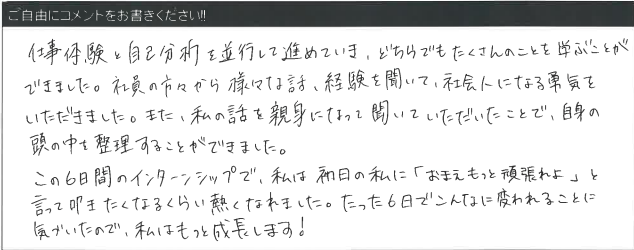 ご自由にコメントをお書きください!!
仕事体験と自己分析を並行して進めていき、どちらでもたくさんのことを学ぶことが
できました。社員の方々から様々な話、経験を聞いて、社会人になる勇気を
いただきました。また、私の話を親身になって聞いていただいたことで、自身の
頭の中を整理することができました。
この6日間のインターンシップで、私は初日の私に「おまえもっと頑張れよ」と
言って叩きたくなるくらい熱くなれました。たった6日でこんなに変われることに
気づいたので、私はもっと成長します!